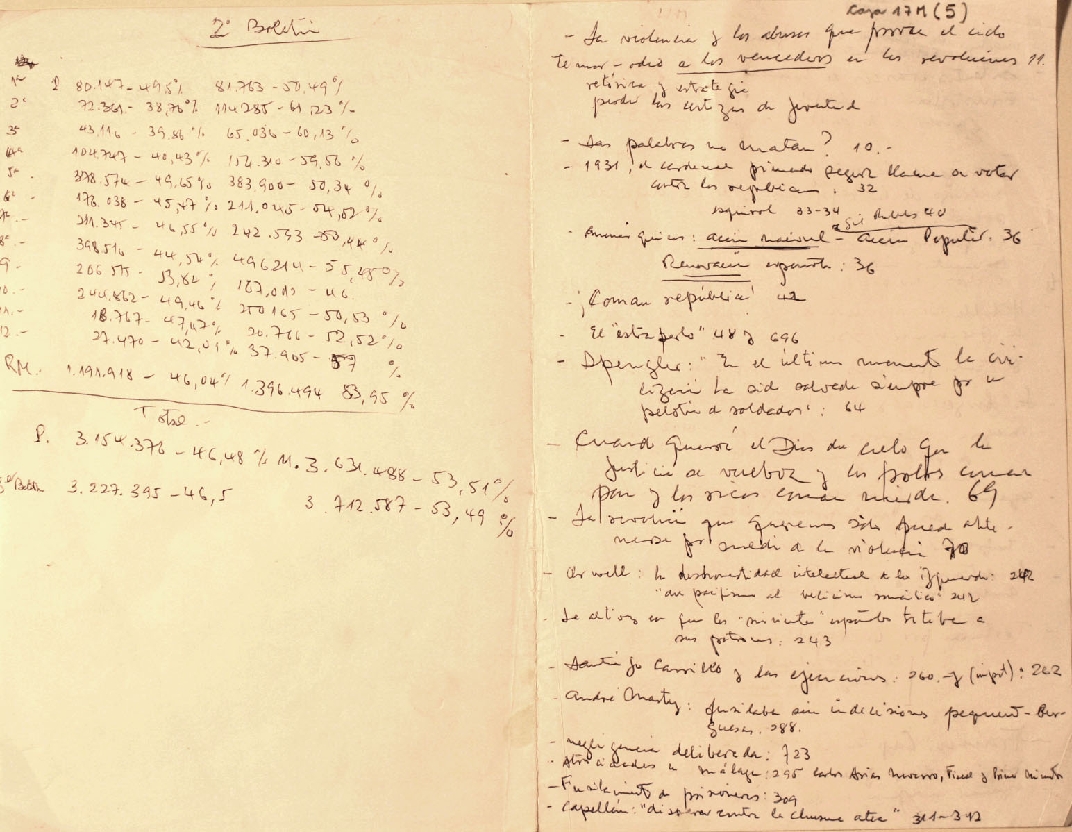 2º Boletín
1º P 80.147-49,5% 81.763-50,49%
2º 72.361-38,76% 114.285-61,23%
3º 43.116-39,86% 65.036-60,13%
104.747-40,43% 154.310-59,56%
5º 378.574-49,65% 383.900-50,34%
6º 173.038-45,47% 211.045-54,52%
211.345-46,55% 242.593-53,44%
8º.- 398.516-44,54% 496214-55,45%
9.- 206.515-53,82% 167.013-46
10.- 244.862-49,46% 250165-50,53%
11.- 18.767-47,47% 20.766-52,52%
12.- 27.470-42,01% 37.905-57%
RM. 1.191.918-46,04% 1.396.494 53,95%
Total.-
P. 3.154.376-46,48% M. 3.631.488-53,51%
3º Boletín 3.227.395-46,5 3.712.587-53,49%
Caja 17M (5)
- La violencia y los abusos que provoca el ciclo
temor-odio a los vencedores en las revoluciones 11.
retórica y estrategia
perder las certezas de juventud
- Las palabras no matan? 10.-
- 1931, el cardenal primado Segura llama a votar
contra los republicanos. 32
33-34 Gil Robles 40
- Monárquicos: acción nacional - Acción Popular. 36
Renovación española: 36
- ¡Coman república! 42
- El "estraperlo" 48 y 696
- Spengler: "En el último momento la civi-
lización ha sido salvada siempre por un
pelotón de soldados": 64
- Cuando querrá el Dios del cielo que la
justicia se vuelva y los pobres coman
pan y los ricos coman mierda. 69
- La revolución que queremos sólo puede obte-
nerse por medio de la violencia 70
- Orwell: la deshonestidad intelectual de la izquierda: 242
"del pacifismo al belicismo romántico" 242
- La altivez en que los "sirvientes" españoles trataban a
sus patronos: 243
- Santiago Carrillo y las ejecuciones: 260.- y (impt): 262
- André Marty: fusilaba sin indecisiones pequeño-bur-
guesas: 288.
- negligencia deliberada: 723
- Atrocidades en Málaga: 295 Carlos Arias Navarro, Fiscal y Primer Ministro
- Fusilamiento de prisioneros: 309
- Capellán: "disparar contra la chusma atea" 311-312